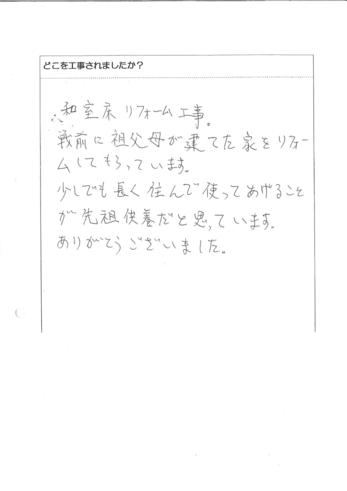 どこを工事されましたか？
∴和室床リフォーム工事。
戦前に祖父母が建てた家をリフォー
ムしてもらっています。
少しでも長く住んで使ってあげること
が先祖供養だと思っています。
ありがとうございました。